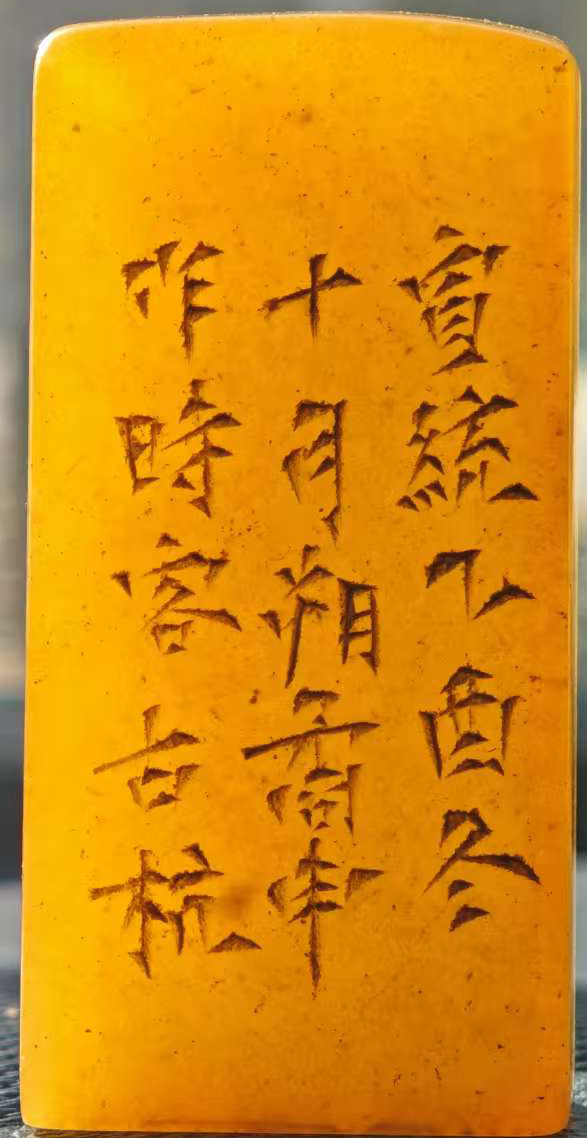 宣統乙酉冬
十月朔喬申
作時客古杭